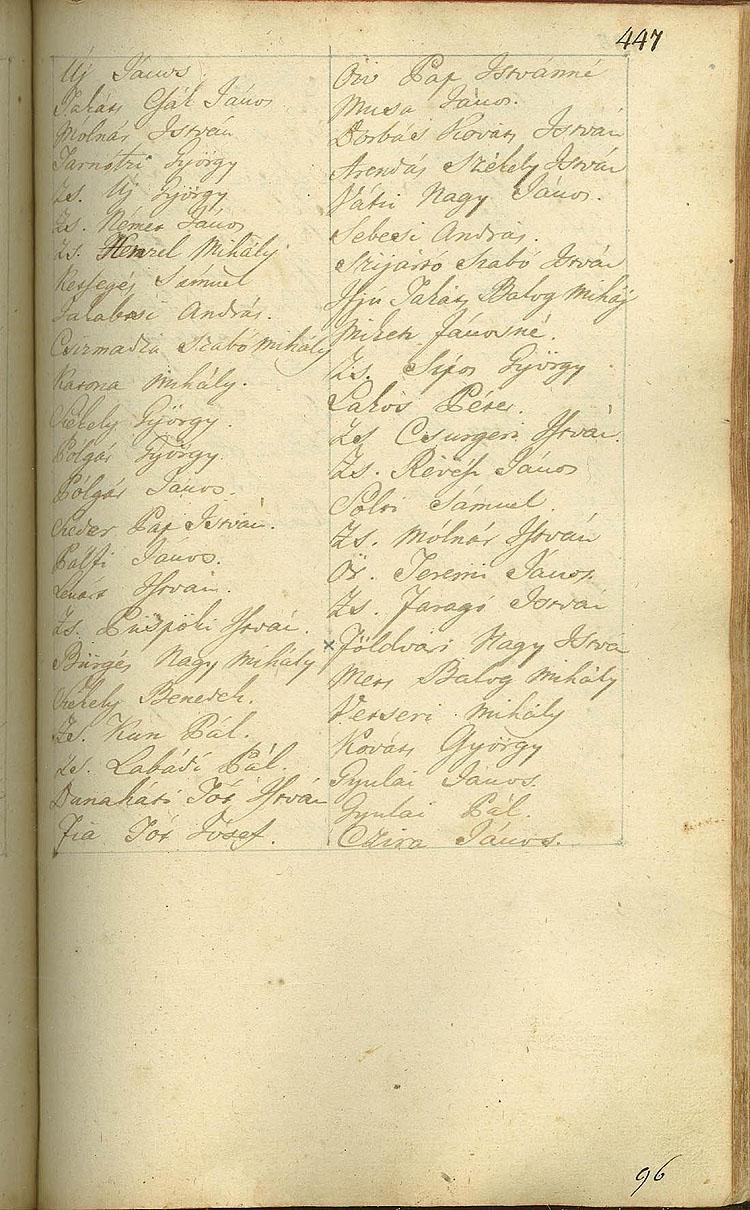 447
Uj János
Takáts Csák János
Molnár István
Tarnotzi György
Zs. Uj György
Zs. Nemes János
Zs. Henzel Mihály
Kesseges Sámuel
András.
Csizmadia Szabó Mihály
Katona Mihály.
Székely György.
Pólgár György.
Pólgár János.
Kéder Pap István.
Pálfi János.
Lénárt István.
Zs. Püspöki István.
Bürgés Nagy Mihály
Székely Benedek.
Zs. Kun Pál.
Zs. Labádi Pál.
Dunaháti Tót István
Fia Tót Jósef.
ÖIv Pap Istvánné
Musa János.
Dorbács Kováts István
Arendás Székely István
Vátzi Nagy János.
Sebesi András.
Szijartó Szabó István
Ifjú Takáts Balog Mihály
Mikets Jánosné.
Zs. Sipos György
Lakos Péter.
Zs Csurgeri István.
Zs. Révész János
Solti Sámuel.
Zs. Mólnár István
Ör. Jeremi János.
Zs. Faragó István
x Földvári Nagy Istvá
Mets Balog Mihály
Verseri Mihály
Kováts György
Gyulai János.
Gyulai Pál.
Czira János.
96